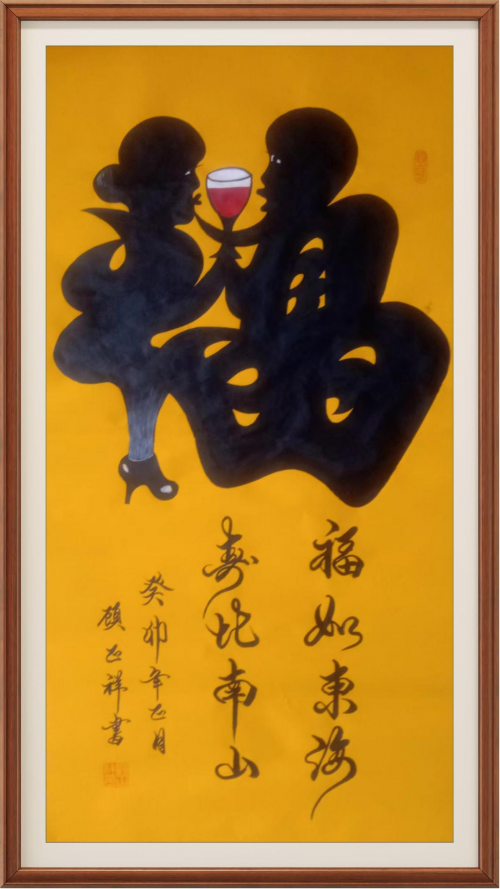 福如東海
寿比南山
癸卯年正月
顾正祥書